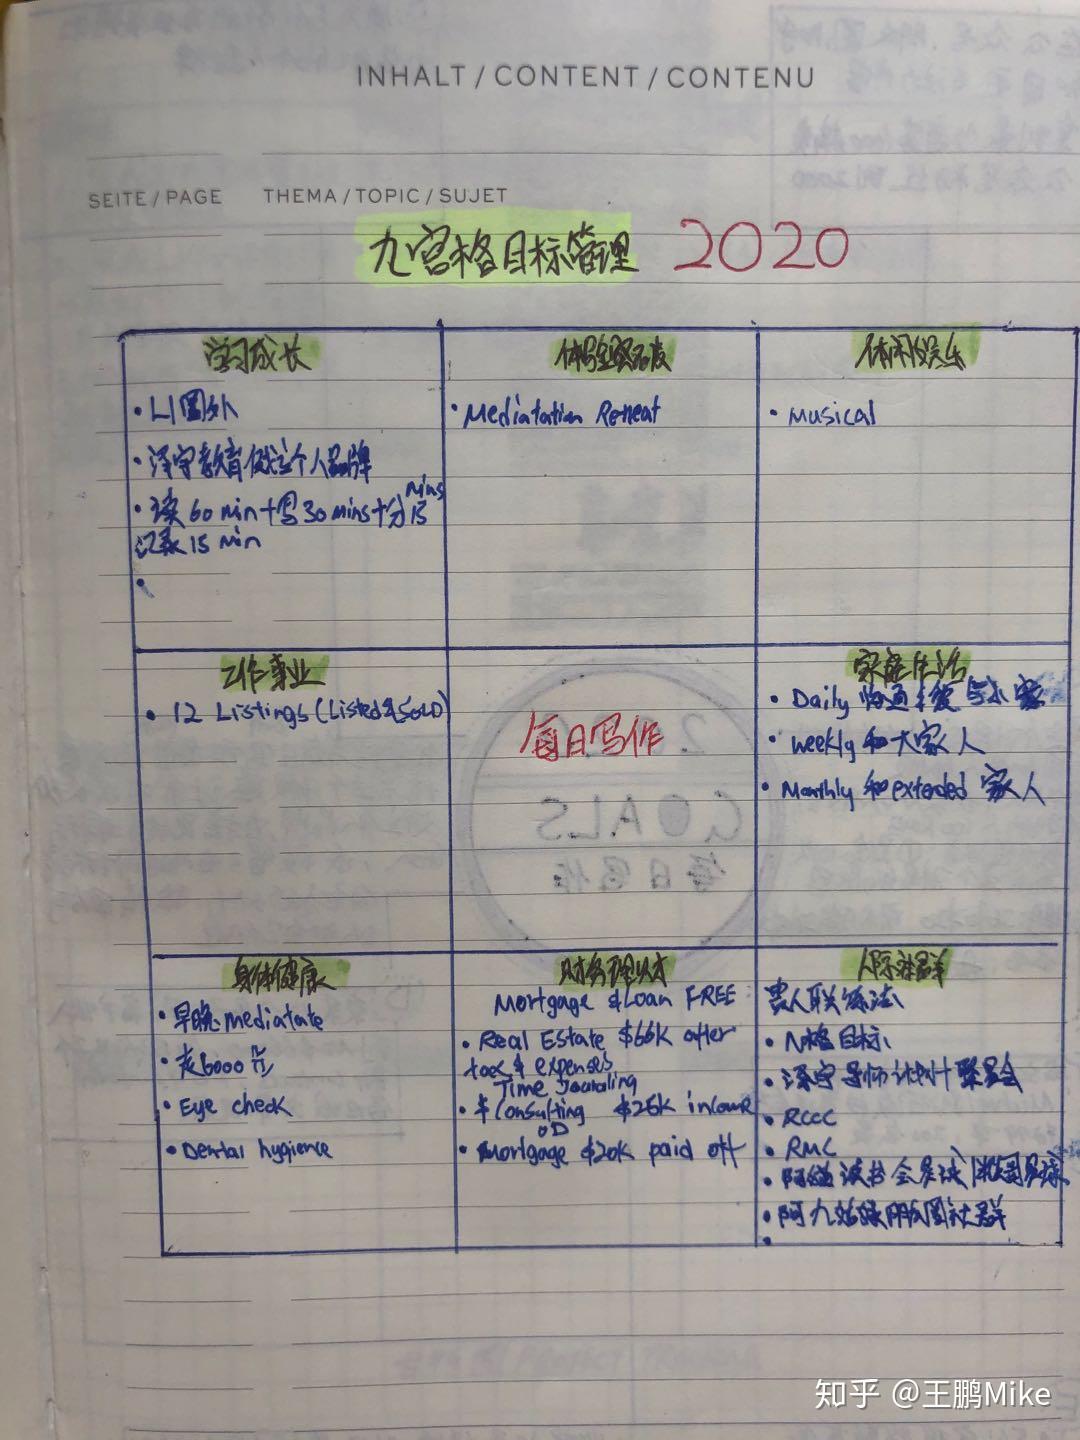 INHALT / CONTENT / CONTENU
SEITE / PAGE
THEMA / TOPIC / SUJET
九宫格目标管理 2020
学习成长
• L1圈外
• 泽宇教育做这个人品牌
• 读60 min+写30 mins+分15 mins
记录15 min
体验突破
• Mediatation Reneat
休闲娱乐
• Musical
工作事业
• 12 Listings (Listed & SOLD)
每日写作
家庭生活
• Daily 沟通 与小家
• weekly 和大家人
• Monthly 和 extended 家人
身体健康
• 早晚 mediatate
• 走6000步
• Eye check
• Dental hygience
财务理财
Mortgage & Loan FREE
• Real Estate $66K after
taxes & expenses
Time Jouraling
• & Consulting $26K income
OD
• Mortgage $20K paid off
人际社群
贵人联络法
• N格目标
• 泽宇导师计划+聚会
• RCCC
• RMC
• 阿 读书会
• 阿九 朋友圈社群
GOALS
每日写作
知乎 @王鹏Mike